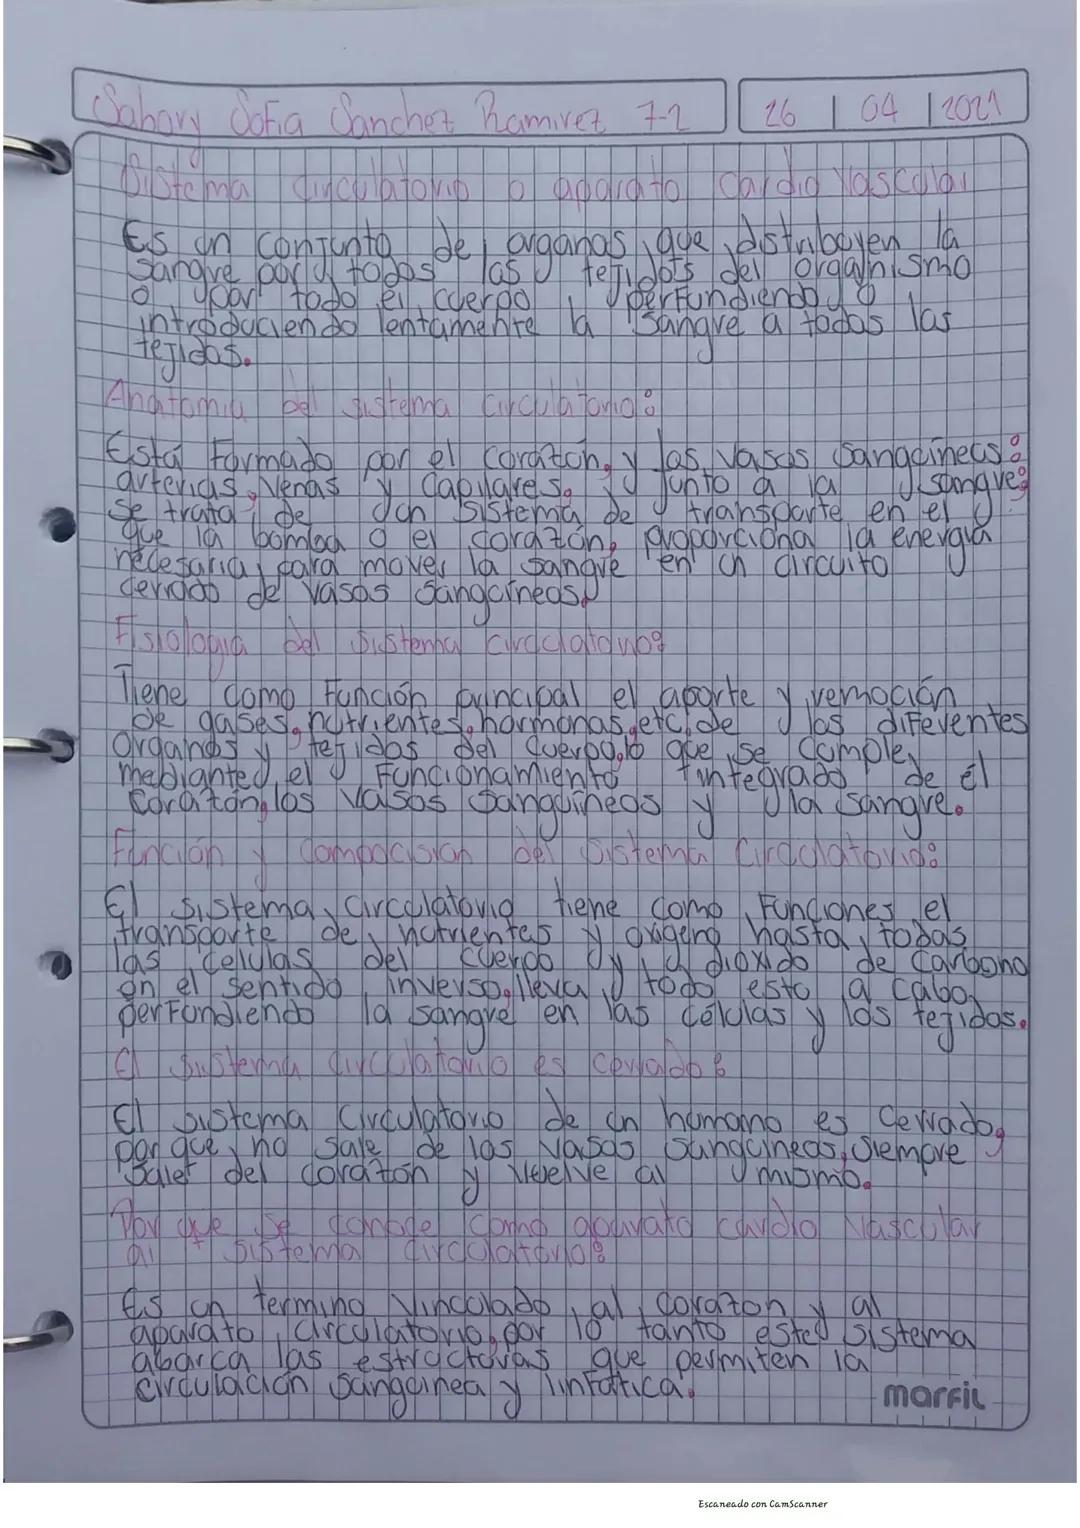 Sahory Sofia Sanchez Ramirez 7-2 26 | 04 | 2021
Sistema circulatorio o aparato cardio vascular
Es un conjunto de organos que distribuyen la
sangre por y todos los tejidos del organismo
o por todo el cuerpo perfundiendo o
introduciendo lentamente la sangre a todos los
tejidos.
Anatomia del sistema circulatorio:
Está formado por el corazón, y los vasos sanguineos:
arterias, venas y capilares. y junto a la sangre:
se trata de un sistema de transporte en el
que la bomba o el corazón, proporciona la energia
necesaria para mover la sangre en un circuito
cerrado de vasos sanguíneos.
Fisiologia del sistema circulatorio:
Tiene como función principal el aporte y remoción
de gases, nutrientes, hormonas, etc, de los diferentes
organos y tejidos del cuerpo, lo que se cumple
mediante el funcionamiento integrado de él
corazón, los vasos sanguíneos y la sangre.
Función y composicion del sistema circulatorio:
El sistema circulatorio tiene como funciones el
transporte de nutrientes y oxigeno hasta todas
las celulas del cuerpo y dioxido de carbono
en el sentido inverso, lleva todo esto a cabo
perfundiendo la sangre en las células y los tejidos.
El sistema circulatorio es cerrado:
El sistema circulatorio de un humano es cerrado,
por que no sale de los vasos sanguineos, siempre
sale del corazón y vuelve al mismo.
Por que se conoce como aparato cardio vascular
al sistema circulatorio:
Es un termino vinculado al corazon y al
aparato circulatorio, por lo tanto este sistema
abarca las estructuras que permiten la
circulación sanguinea y linfatica.
marfil
Escaneado con CamScanner